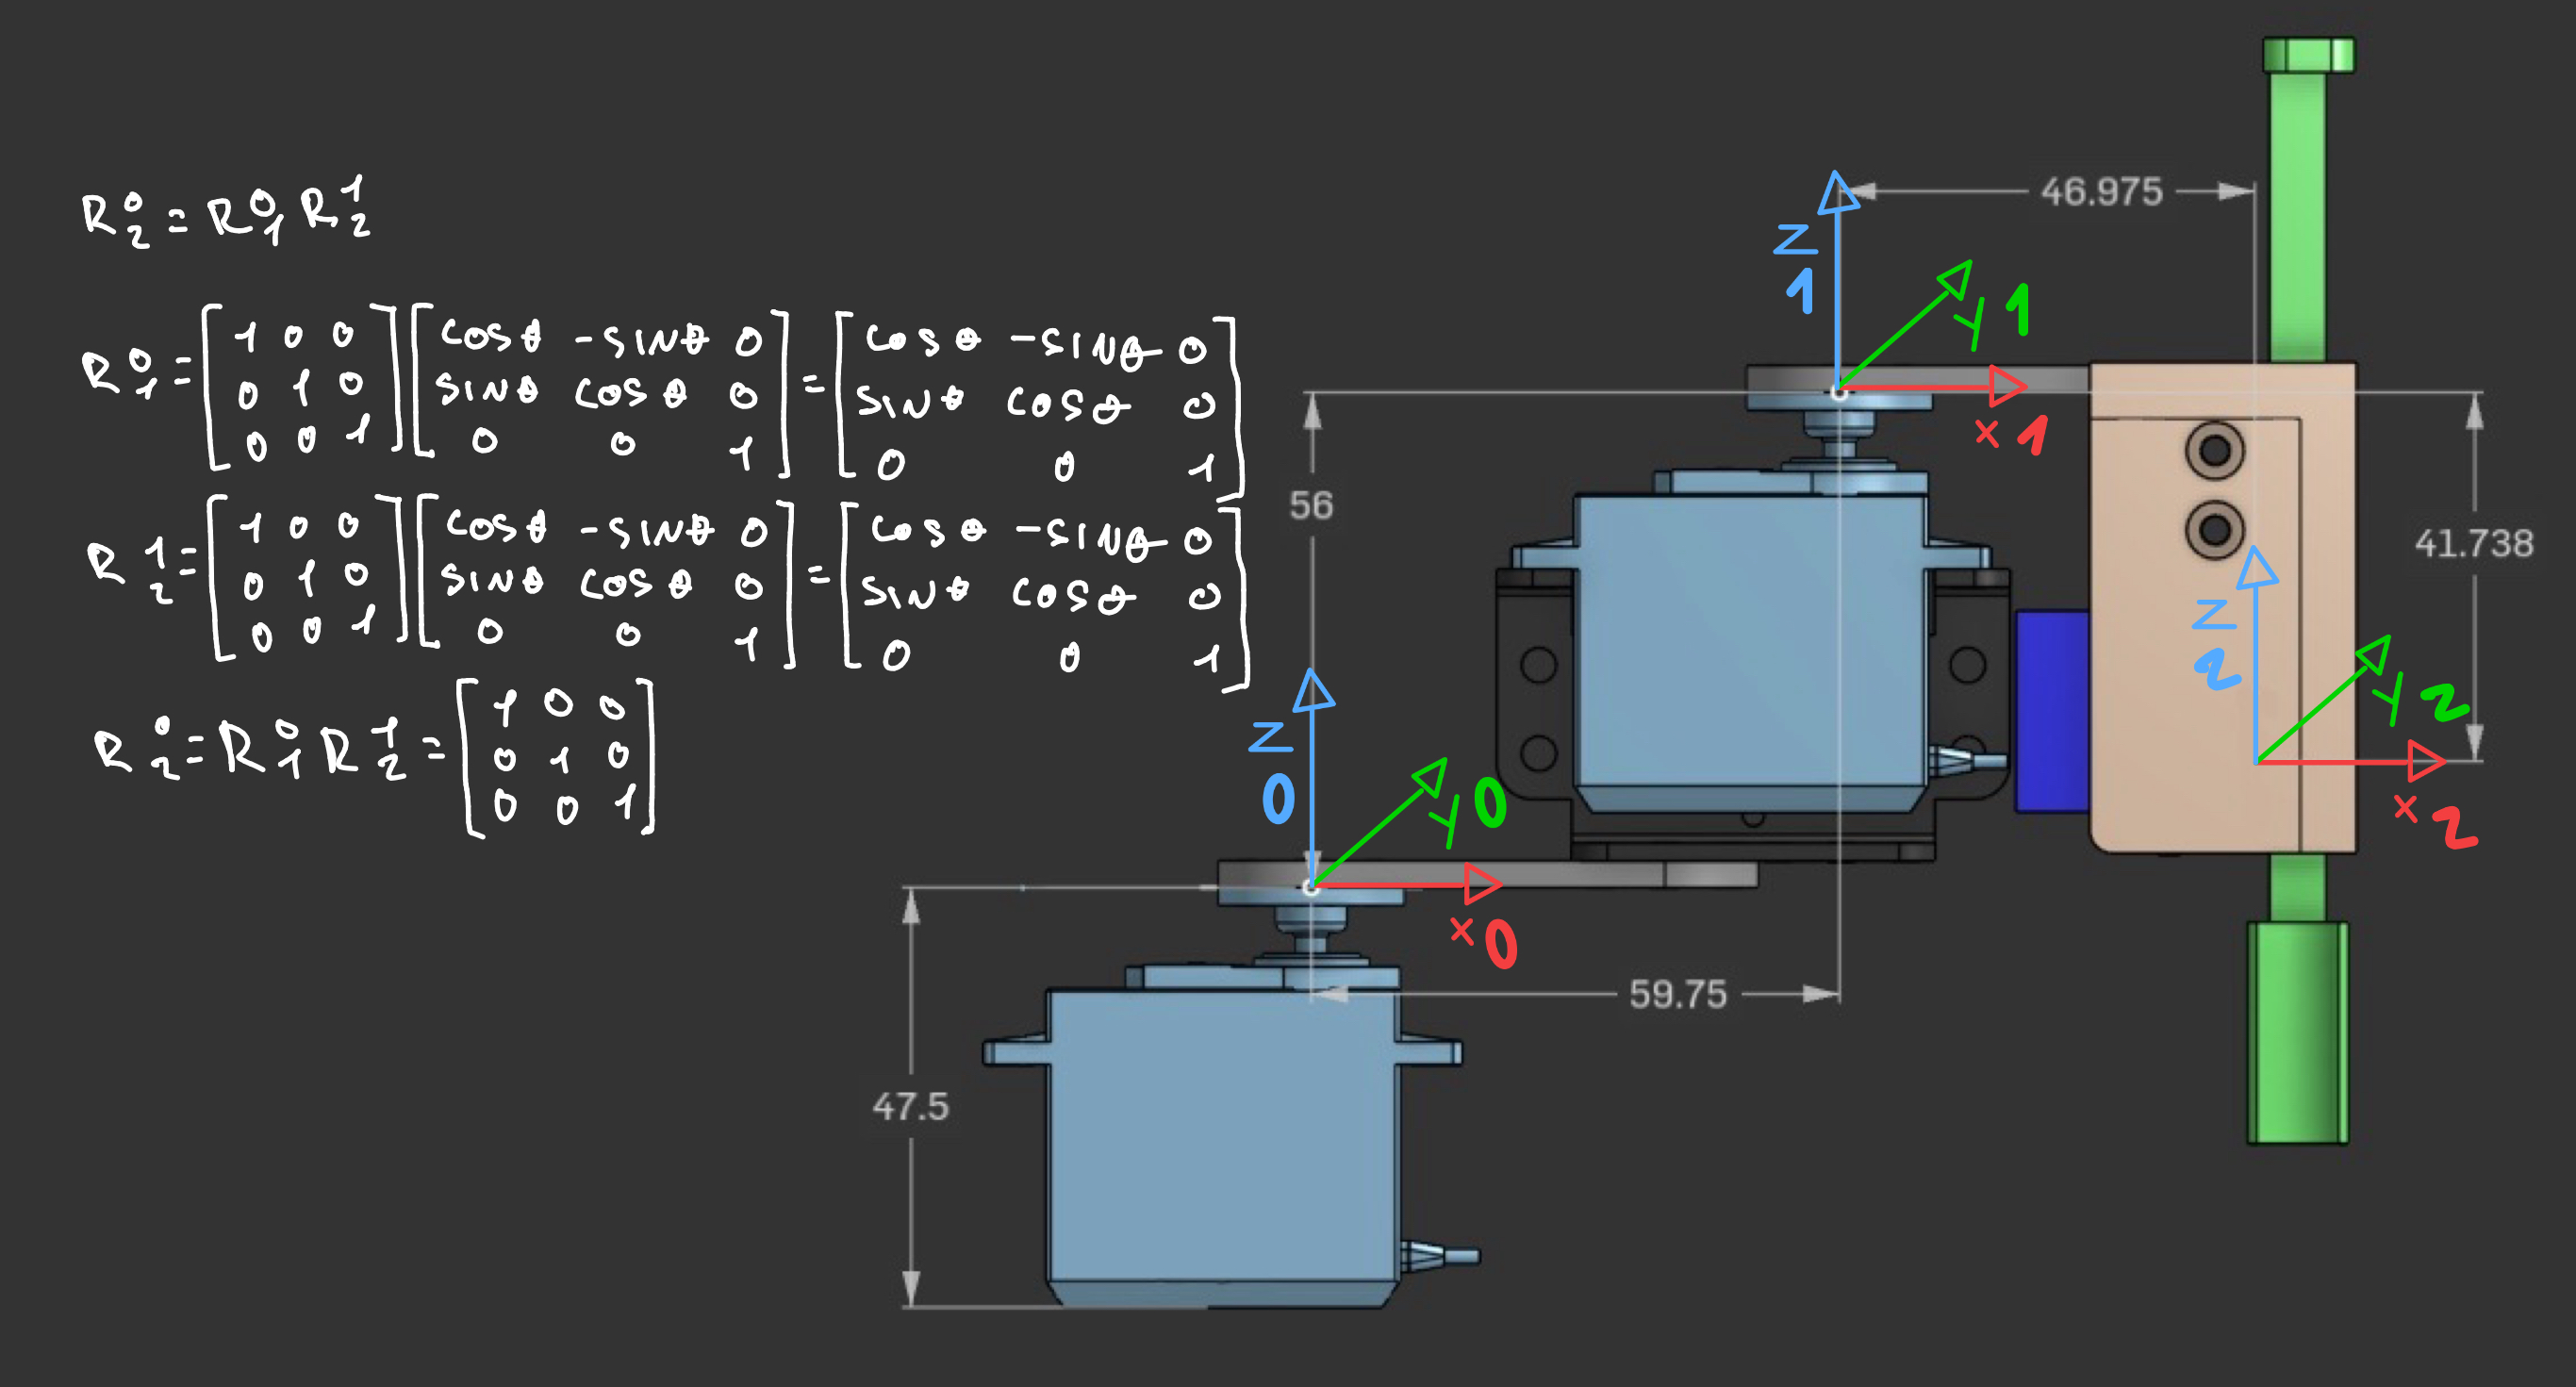 R⁰₂ = R⁰₁ R¹₂
R⁰₁ = [1 0 0; 0 1 0; 0 0 1] [cosθ -sinθ 0; sinθ cosθ 0; 0 0 1] = [cosθ -sinθ 0; sinθ cosθ 0; 0 0 1]
R¹₂ = [1 0 0; 0 1 0; 0 0 1] [cosθ -sinθ 0; sinθ cosθ 0; 0 0 1] = [cosθ -sinθ 0; sinθ cosθ 0; 0 0 1]
R⁰₂ = R⁰₁ R¹₂ = [1 0 0; 0 1 0; 0 0 1]
46.975
z1
y1
x1
56
41.738
z2
y2
x2
z0
y0
x0
59.75
47.5